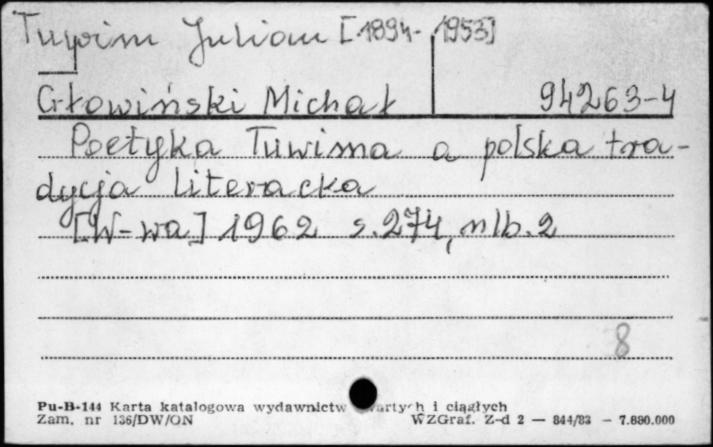 Tuwim Julian [1894-1953]
Głowiński Michał 94263-4
Poetyka Tuwima a polska tra-
dycja literacka
[W-wa] 1962 s.274, nlb.2
8
Pu-B-144 Karta katalogowa wydawnictw i ciągłych
Zam. nr 136/DW/ON WZGraf. Z-d 2 — 844/83 — 7.880.000